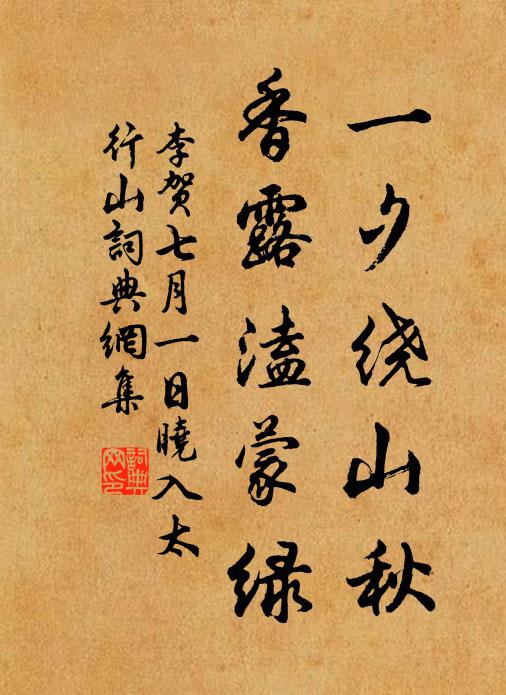 一夕绕山秋
香露溘蒙绿
李贺七月一日曉入太
行山詞典網集
詞典網印